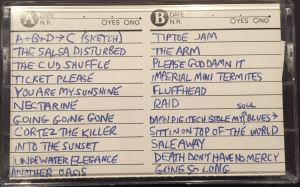 A DATE N.R. OYES ONO
A+B+D→C (SKETCH)
THE SALSA DISTURBED
THE CUD SHUFFLE
TICKET PLEASE
YOU ARE MY SUNSHINE
NECTARINE
GOING GOING GONE
CORTEZ THE KILLER
INTO THE SUNSET
UNDERWATER ELEGANCE
ANOTHER OASIS
B DATE N.R. OYES ONO
TIPTOE JAM
THE ARM
PLEASE GOD DAMN IT
IMPERIAL MINI TERMITES
FLUFFHEAD
RAID
DAMN DIGITECH STOLE MY SOUL BLUES
SITTIN ON TOP OF THE WORLD
SALE AWAY
DEATH DON'T HAVE NO MERCY
GONE SO LONG